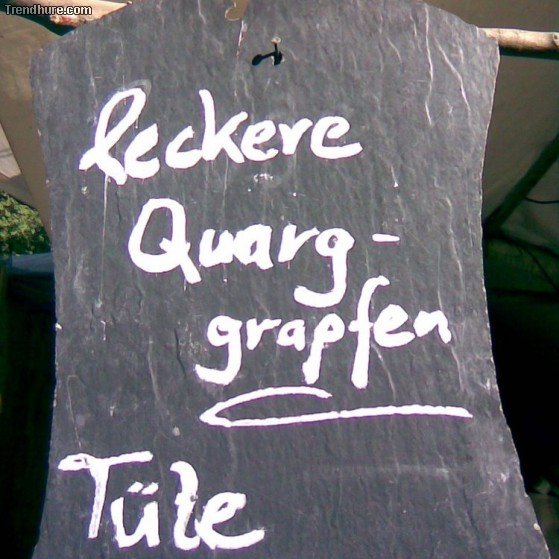 Trendhure.com
leckere
Quarg-
grapfen
Tüle